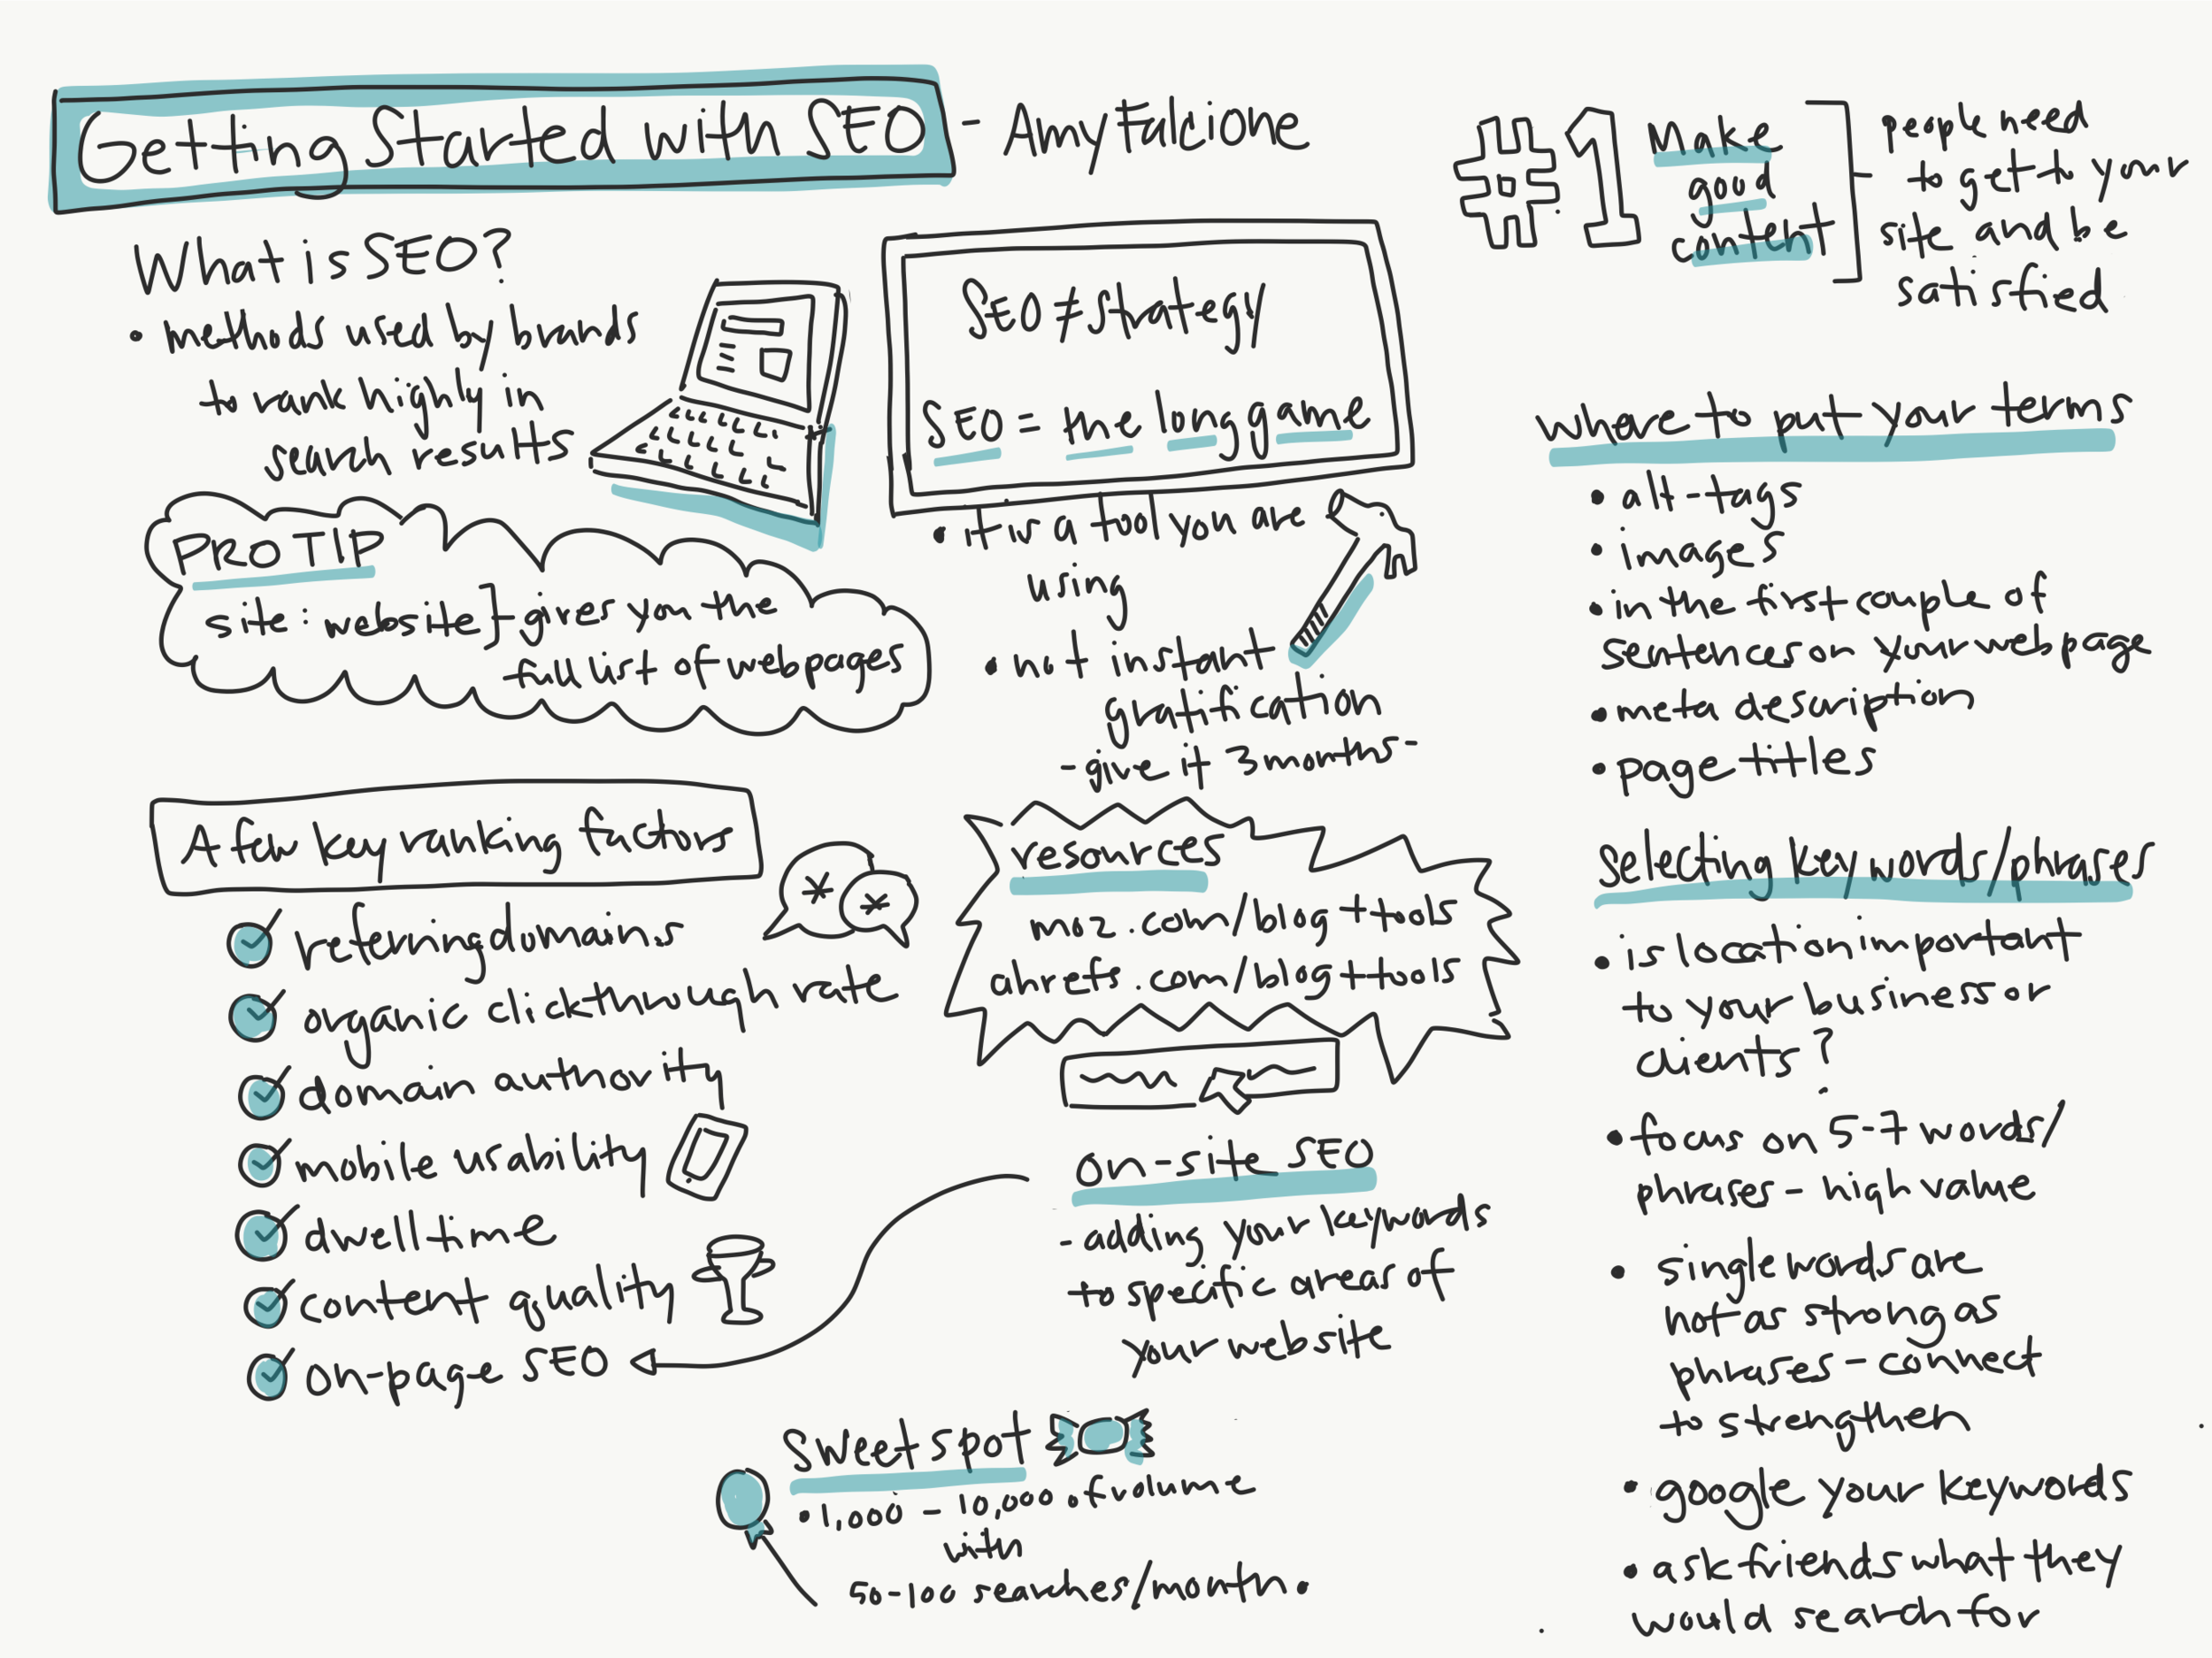 Getting Started with SEO - Amy Falcione
What is SEO?
• methods used by brands
to rank highly in
search results
PRO TIP
site: website ]- gives you the
full list of webpages
A few key ranking factors
referring domains
organic clickthrough rate
domain authority
mobile usability
dwell time
content quality
on-page SEO
SEO ≠ strategy
SEO = the long game
• it is a tool you are
using
• not instant
gratification
- give it 3 months -
resources
moz.com/blog + tools
ahrefs.com/blog + tools
on-site SEO
- adding your keywords
to specific areas of
your website
Sweet spot
• 1,000 - 10,000 of volume
with
50-100 searches/month.
#1 Make
good
content
people need
to get to your
site and be
satisfied
where to put your terms
• alt-tags
• images
• in the first couple of
sentences on your webpage
• meta description
• page titles
Selecting key words/phrases
• is location important
to your business or
clients?
• focus on 5-7 words/
phrases - high value
• single words are
not as strong as
phrases - connect
to strengthen
• google your keywords
• ask friends what they
would search for